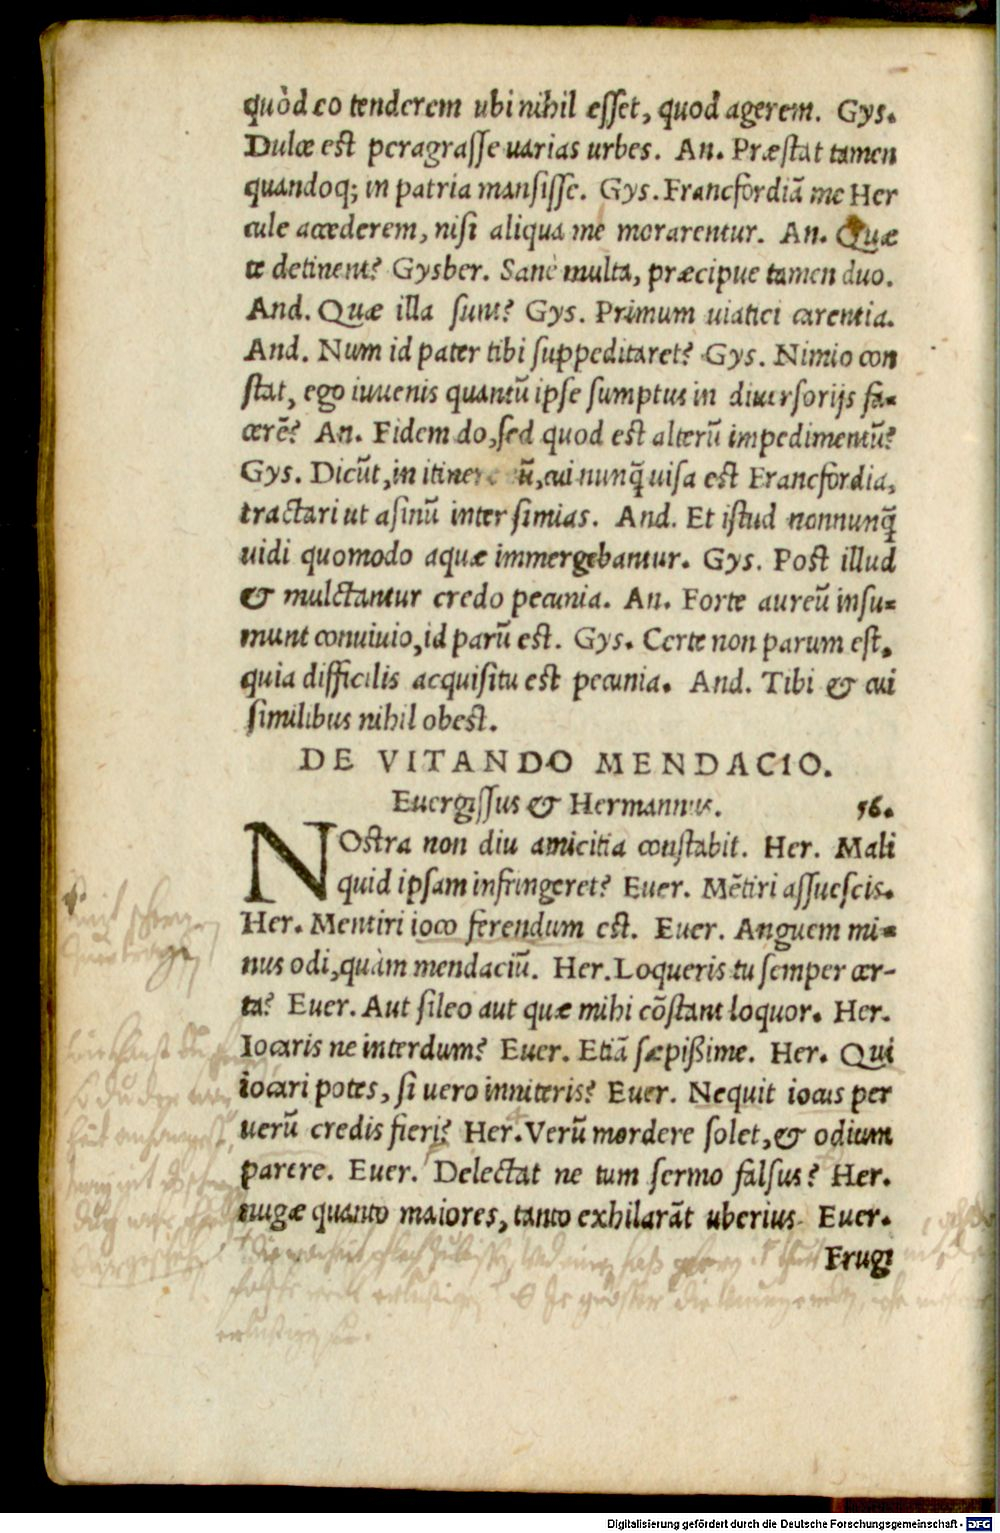 quòd eo tenderem ubi nihil esset, quod agerem. Gys.
Dulce est peragrasse uarias urbes. An. Præstat tamen
quandoq; in patria mansisse. Gys. Francfordiā me Her
cule accederem, nisi aliqua me morarentur. An. Quæ
te detinent? Gysber. Sanè multa, præcipue tamen duo.
And. Quæ illa sunt? Gys. Primum uiatici carentia.
And. Num id pater tibi suppeditaret? Gys. Nimio con
stat, ego iuuenis quantū ipse sumptus in diuersorijs fa-
cerē? An. Fidem do, sed quod est alterū impedimentū?
Gys. Dicūt, in itinere cui nunq̄ uisa est Francfordia,
tractari ut asinū inter simias. And. Et istud nonnunq̄
uidi quomodo aquæ immergebantur. Gys. Post illud
& mulctantur credo pecunia. An. Forte aureū insu-
munt conuiuio, id parū est. Gys. Certe non parum est,
quia difficilis acquisitu est pecunia. And. Tibi & cui
similibus nihil obest.
DE VITANDO MENDACIO.
Euergissus & Hermannus. 56.
NOstra non diu amicitia constabit. Her. Mali
quid ipsam infringeret? Euer. Mētiri assuescis.
Her. Mentiri ioco ferendum est. Euer. Anguem mi-
nus odi, quàm mendaciū. Her. Loqueris tu semper cer-
ta? Euer. Aut sileo aut quæ mihi cōstant loquor. Her.
Iocaris ne interdum? Euer. Etiā sæpißime. Her. Qui
iocari potes, si uero inniteris? Euer. Nequit iocus per
uerū credis fieri? Her. Verū mordere solet, & odium
parere. Euer. Delectat ne tum sermo falsus? Her.
nugæ quanto maiores, tanto exhilarāt uberius. Euer.
Frugi
Digitalisierung gefördert durch die Deutsche Forschungsgemeinschaft - DFG